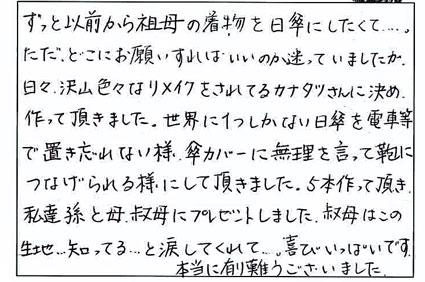 ずっと以前から祖母の着物を日傘にしたくて…。
ただ、どこにお願いすればいいのか迷っていましたが、
日々、沢山色々なリメイクをされてるカナタツさんに決め、
作って頂きました。世界に1つしかない日傘を電車等
で置き忘れない様、傘カバーに無理を言って鞄に
つなげられる様にして頂きました。5本作って頂き、
私達孫と母、叔母にプレゼントしました。叔母はこの
生地…知ってる…と涙してくれて…。喜びいっぱいです。
本当に有り難うございました。